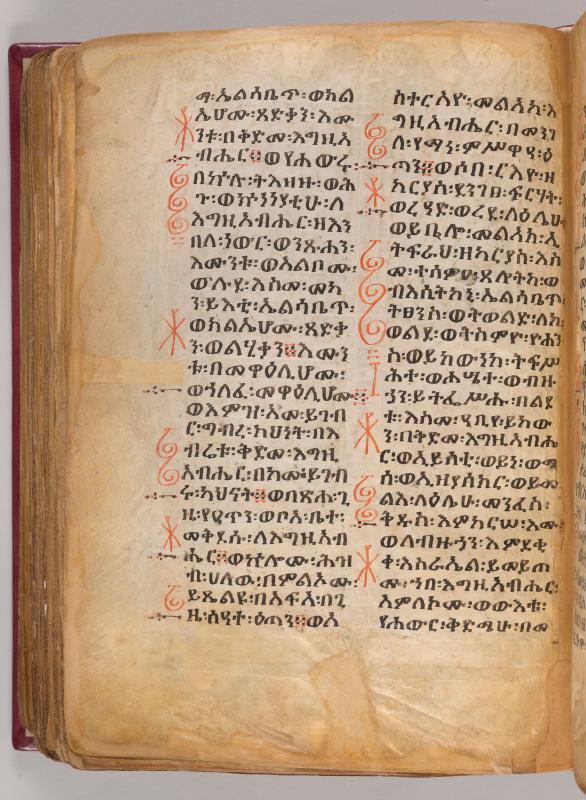 ማ፡ኤልሳቤጥ፡ወክል
ኤሆሙ፡ጻድቃን፡እሙ
ንቱ፡በቅድመ፡እግዚአ
ብሔር።ወየሐውሩ፡
በኵሉ፡ትእዛዙ፡ወሕ
ጉ፡ወኵነኔያቲሁ፡ለ
እግዚአብሔር፡ዘእን
በለ፡ነውር፡ወንጹሐን፡
እሙንቱ፡ወአልቦሙ፡
ውሉደ፡እስመ፡መካ
ን፡ይእቲ፡ኤልሳቤጥ፡
ወክልኤሆሙ፡ጻድቃ
ን፡ወልሂቃን።እሙን
ቱ፡በመዋዕሊሆሙ፡
ወኀለፈ፡መዋዕሊሆሙ።
ወእምዝ፡እመ፡ይገብ
ር፡ግብረ፡ክህነት፡በእ
ብሬቱ፡ቅድመ፡እግዚ
አብሔር፡በከመ፡ይገብ
ሩ፡ካህናት።ወበጽሐ፡ጊ
ዜ፡የዐጥን፡ወቦአ፡ቤተ፡
መቅደሱ፡ለእግዚአብ
ሔር።ወኵሎሙ፡ሕዝ
ብ፡ሀለዉ፡በምልኦሙ፡
ይጼልዩ፡በአፍአ፡በጊ
ዜ፡ሰዓተ፡ዕጣን።ወአ
ስተርአዮ፡መልአከ፡እ
ግዚአብሔር፡በመንገ
ለ፡የማነ፡ምሥዋዒ፡ዕ
ጣን።ወሶበ፡ርእዮ፡ዘ
ካርያስ፡ደንገፀ፡ፍርሃት፡
ወረዓድ፡ወረደ፡ላዕሌሁ
ወይቤሎ፡መልአክ፡ኢ
ትፍራህ፡ዘካርያስ፡እስ
መ፡ተሰምዐ፡ጸሎትከ፡ወ
ብእሲትከኒ፡ኤልሳቤጥ፡
ትፀንስ፡ወትወልድ፡ለከ፡
ወልደ፡ወትሰምዮ፡ዮሐን
ስ፡ወይከውነከ፡ትፍሥ
ሕተ፡ወሐሤተ፡ወብዙ
ኃን፡ይትፌሥሑ፡በልደ
ቱ፡እስመ፡ዓቢየ፡ይከው
ን፡በቅድመ፡እግዚአብሔ
ር፡ወአይሰቲ፡ወይነ፡ወሜ
ሰ፡ወኢዘያሰክር፡ወይመ
ልእ፡ላዕሌሁ፡መንፈስ፡
ቅዱስ፡እምከርሠ፡እሙ፡
ወለብዙኃን፡እምደቂ
ቀ፡እስራኤል፡ይመይጦ
ሙ፡ኀበ፡እግዚአብሔር፡
አምላኮሙ፡ወውእቱ፡
የሐውር፡ቅድሜሁ፡በመ